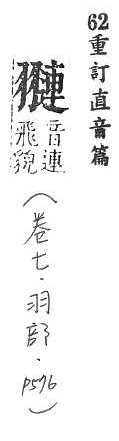 62重訂直音篇
翴
音連
飛貌
(卷七·羽部·p576)